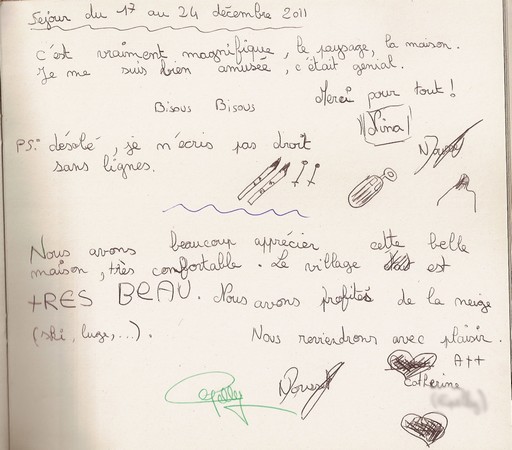 Sejour du 17 au 24 décembre 2011
c'est vraiment magnifique, le paysage, la maison.
Je me suis bien amusée, c'était genial.
Merci pour tout !
Bisous Bisous
Nina
PS: désolé, je n'écris pas droit
sans lignes.
Nous avons beaucoup apprécier cette belle
maison, très confortable. Le village est
tRES BEAU. Nous avons profités de la neige
(ski, luge,...).
Nous reviendrons avec plaisir.
A++
Catherine